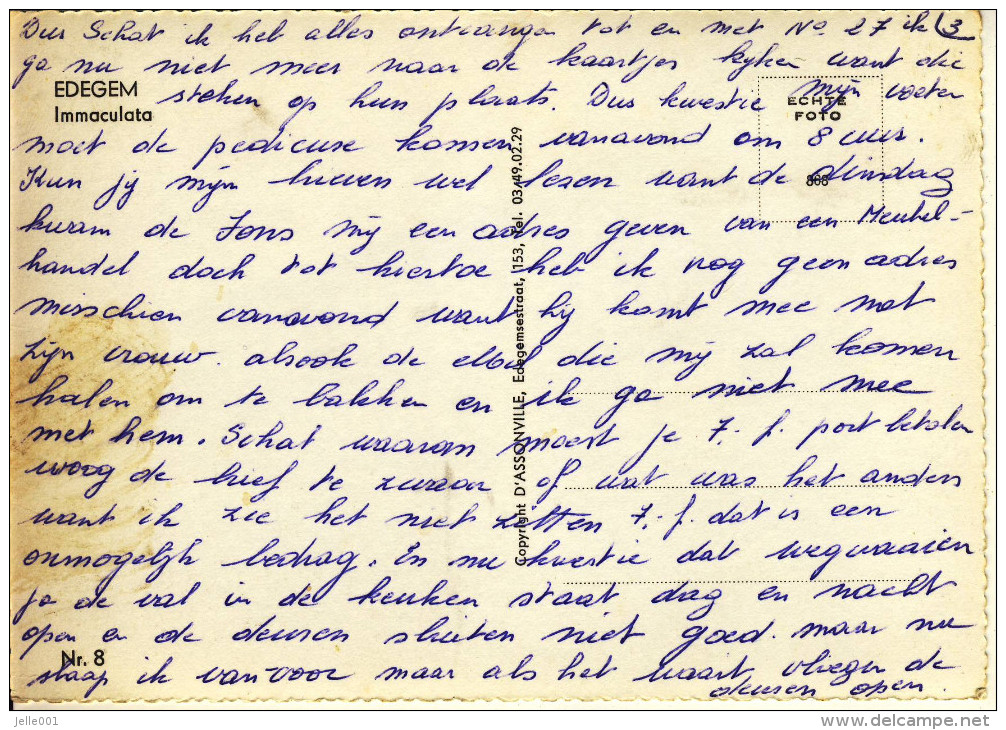 Dus Schat ik heb alles ontvangen tot en met No 27 ik (3
ga nu niet meer naar de kaartjes kijken want die
EDEGEM
Immaculata
ECHTE
FOTO
868
stehen op hun plaats. Dus kwestie mijn voeten
moet de pedicuse komen vanavond om 8 uur.
Kun jij mijn brieven wel lezen want de dindag
kwam de Fons mij een adres geven van een Meubel-
handel doch tot hiertoe heb ik nog geen adres
misschien vanavond want hij komt mee met
zijn vrouw. alsook de die mij zal komen
halen om te bakken en ik ga niet mee
met hem. Schat waarom moest je 7,- f. port betalen
woog de brief te zwaar of wat was het anders
want ik zie het niet zitten 7,- f. dat is een
onmogelijk bedrag. En nu kwestie dat wegwaaien
ja de val in de keuken staat dag en nacht
open en de deuren sluiten niet goed. maar nu
slaap ik van-voor maar als het waait vliegen de
deuren open.
Nr. 8
Copyright D'ASSONVILLE, Edegemsestraat, 153, Tel. 03/49.02.29
jelle001
www.delcampe.net